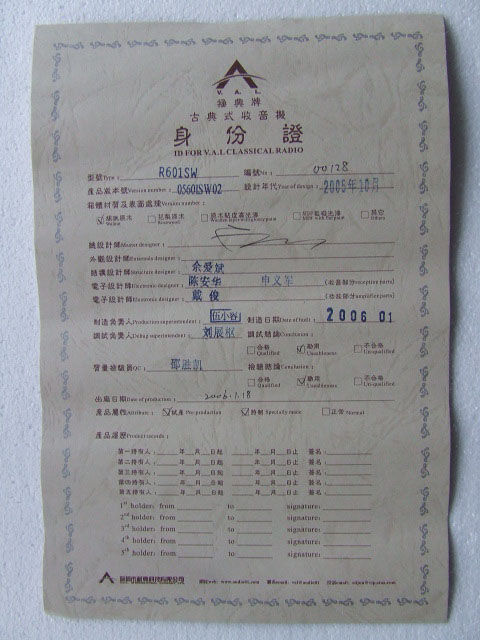 V. A. L.
極典牌
古典式收音機
身份證
ID FOR V.A.L CLASSICAL RADIO
型號Type： R601SW 編號No： 00128
產品版本號Version number： 0560lSW02 設計年代Year of design： 2005年10月
箱體材質及表面處理Version number：
總設計師Master designer：
外觀設計師
結構設計師Structure designer： 余愛斌
電子設計師Electronic designer： 陈安华 申义军
電子設計師Electronic designer： 戴俊
制造負責人Production superintendent： 伍小容 制造日期Date of built： 2006 01
調試負責人Debug superintendent： 刘辰枢 調試結論Conclusion：
合格 Qualified 不合格 Un-qualified
質量檢驗員QC： 檢驗結論Conclusion：
合格 Qualified 不合格 Un-qualified
出廠日期Date of production： 2006.1.18
產品屬性Attribute： 試產 Pre-production 特制 Specially made 正常 Normal
產品履歷Product records：
第一持有人： 年 月 日起 年 月 日止 簽名：
第二持有人： 年 月 日起 年 月 日止 簽名：
第三持有人： 年 月 日起 年 月 日止 簽名：
第四持有人： 年 月 日起 年 月 日止 簽名：
第五持有人： 年 月 日起 年 月 日止 簽名：
1st holder: from to signature:
2nd holder: from to signature:
3rd holder: from to signature:
4th holder: from to signature:
5th holder: from to signature: